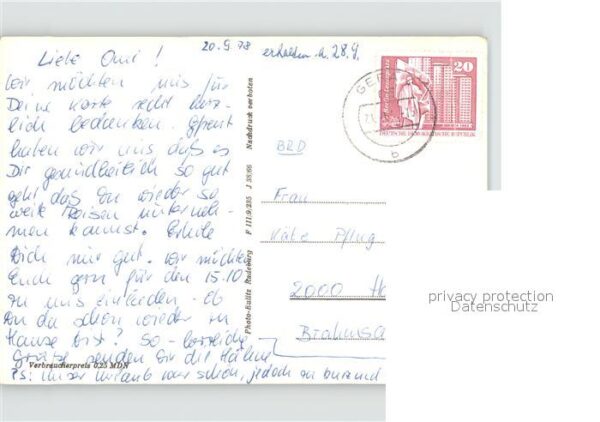 20.9.78
erhalten a. 28.9.
Liebe Omi!
Wir möchten uns für
Deine Karte recht herz-
lich bedanken. Gefreut
haben wir uns daß es
Dir gesundheitlich so gut
geht daß Du wieder so
weite Reisen unterneh-
men kannst. Erhole
Dich nur gut. Wir möchten
Euch gern für den 15.10.
zu uns einladen - ob
Du da schon wieder zu
Hause bist? So - herzliche
Grüße senden Dir die
PS: Unser Urlaub war schön, jedoch zu kurz und
Verbraucherpreis 0,25 MDN
Photo-Eulitz Radeburg F III/9/235 J 38/66 Nachdruck verboten
20
Berlin-Leninplatz
DEUTSCHE DEMOKRATISCHE REPUBLIK
GER
b
BRD
Frau
Käte Pflug
2000 H
Brahmsa
privacy protection
Datenschutz